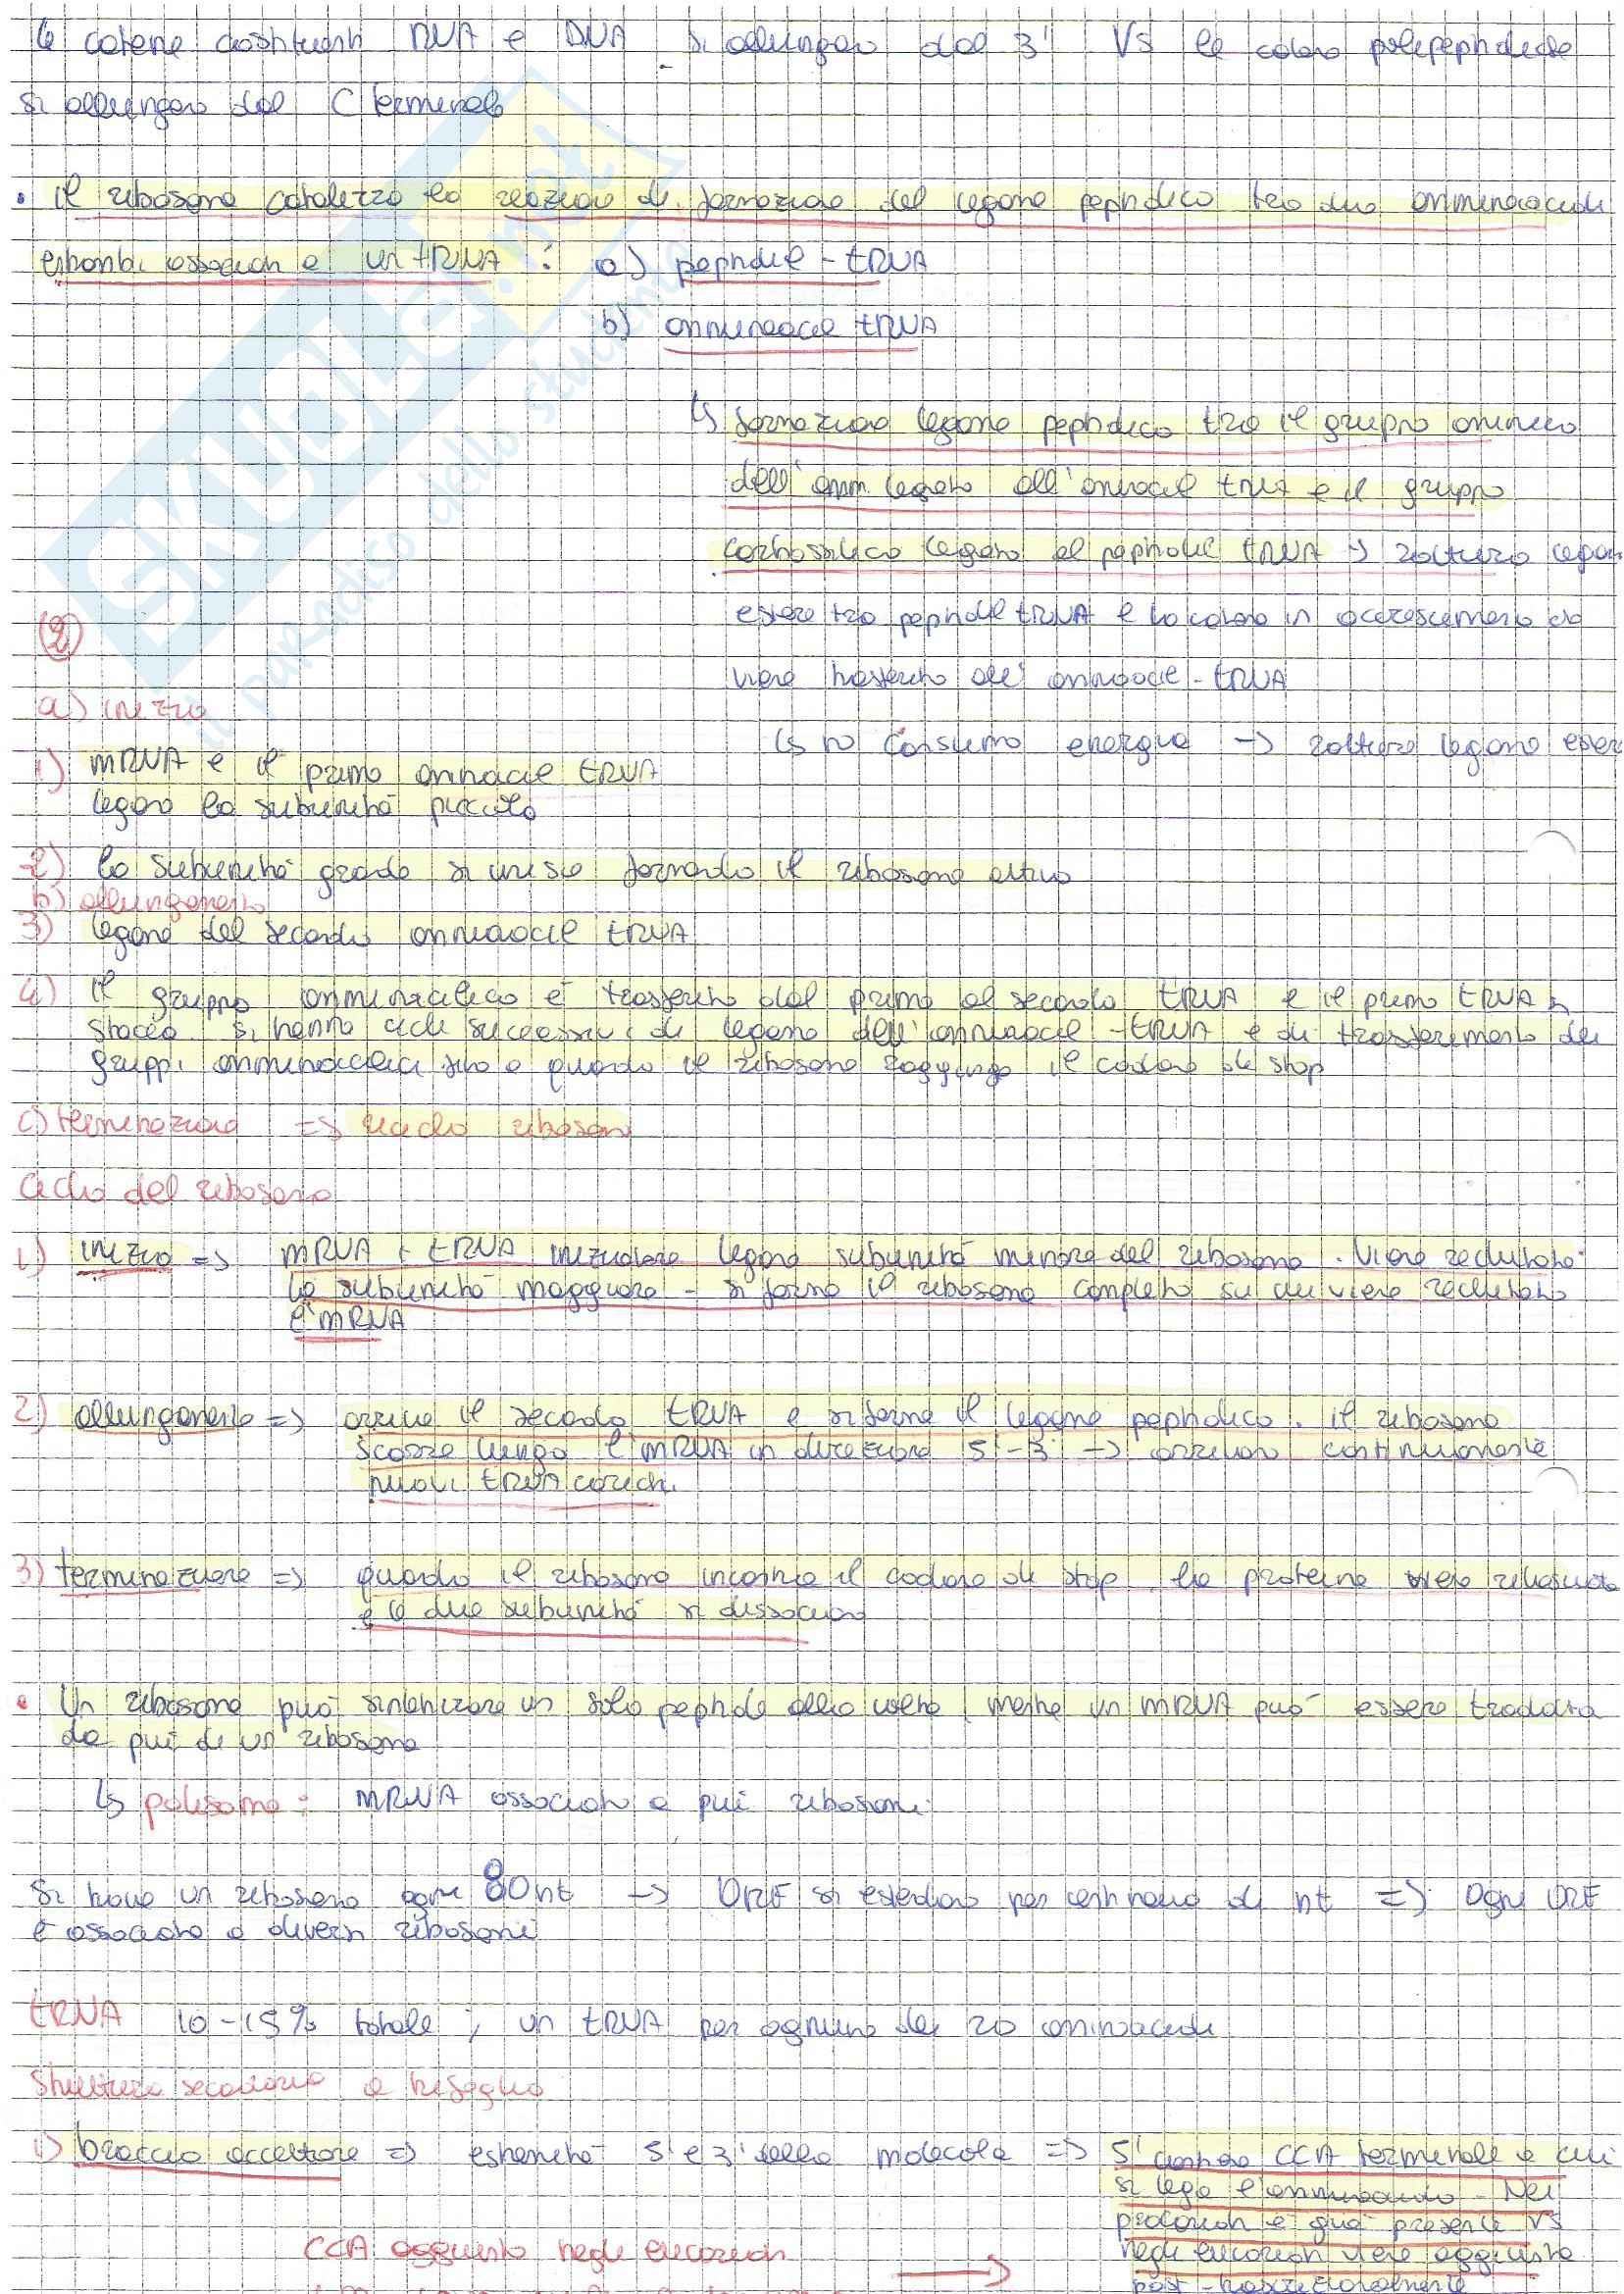 le catene costituenti RNA e DNA si allungano dal 3' VS le catene polipeptidiche
si allungano dal C terminale
• il ribosoma catalizza la reazione di formazione del legame peptidico tra due amminoacidi
entrambi associati a un tRNA : a) peptidil - tRNA
b) amminoacil tRNA
↳ formazione legame peptidico tra il gruppo aminico
dell'amm. legato all'aminoacil tRNA e il gruppo
carbossilico legato al peptidil tRNA → rottura legame
estere tra peptidil tRNA e la catena in accrescimento che
viene trasferito all' aminoacil - tRNA
↳ no consumo energia → rottura legame estere
(2)
a) inizio
1) mRNA e il primo aminoacil tRNA
legano la subunità piccola
2) la subunità grande si unisce formando il ribosoma attivo
b) allungamento
3) legame del secondo aminoacil tRNA
4) il gruppo amminoacilico è trasferito dal primo al secondo tRNA e il primo tRNA si
stacca. si hanno cicli successivi di legame dell'aminoacil - tRNA e di trasferimento dei
gruppi amminoacilici sino a quando il ribosoma raggiunge il codone di stop
c) terminazione => riciclo ribosomi
Ciclo del ribosoma
1) inizio => mRNA + tRNA iniziatore legano subunità minore del ribosoma. Viene reclutata
la subunità maggiore - si forma il ribosoma completo su cui viene reclutato
l'mRNA
2) allungamento => arriva il secondo tRNA e si forma il legame peptidico. il ribosoma
scorre lungo l'mRNA in direzione 5'-3' → arrivano continuamente
nuovi tRNA carichi.
3) terminazione => quando il ribosoma incontra il codone di stop. la proteina viene rilasciata
e le due subunità si dissociano
• Un ribosoma può sintetizzare un solo peptide alla volta, mentre un mRNA può essere tradotto
da più di un ribosoma
↳ polisoma: mRNA associato a più ribosomi
si trova un ribosoma ogni 80 nt → ORF si estendono per centinaia di nt => Ogni ORF
è associato a diversi ribosomi
tRNA 10-15% totale ; un tRNA per ognuno dei 20 aminoacidi
Struttura secondaria a trifoglio
1) braccio accettore => estremità 5' e 3' della molecola => 5' contiene CCA terminale a cui
si lega l'amminoacido - Nei
procarioti è già presente VS
CCA aggiunto negli eucarioti → negli eucarioti viene aggiunta
post - trascrizionalmente
SKUOLA.net
il paradiso dello studente